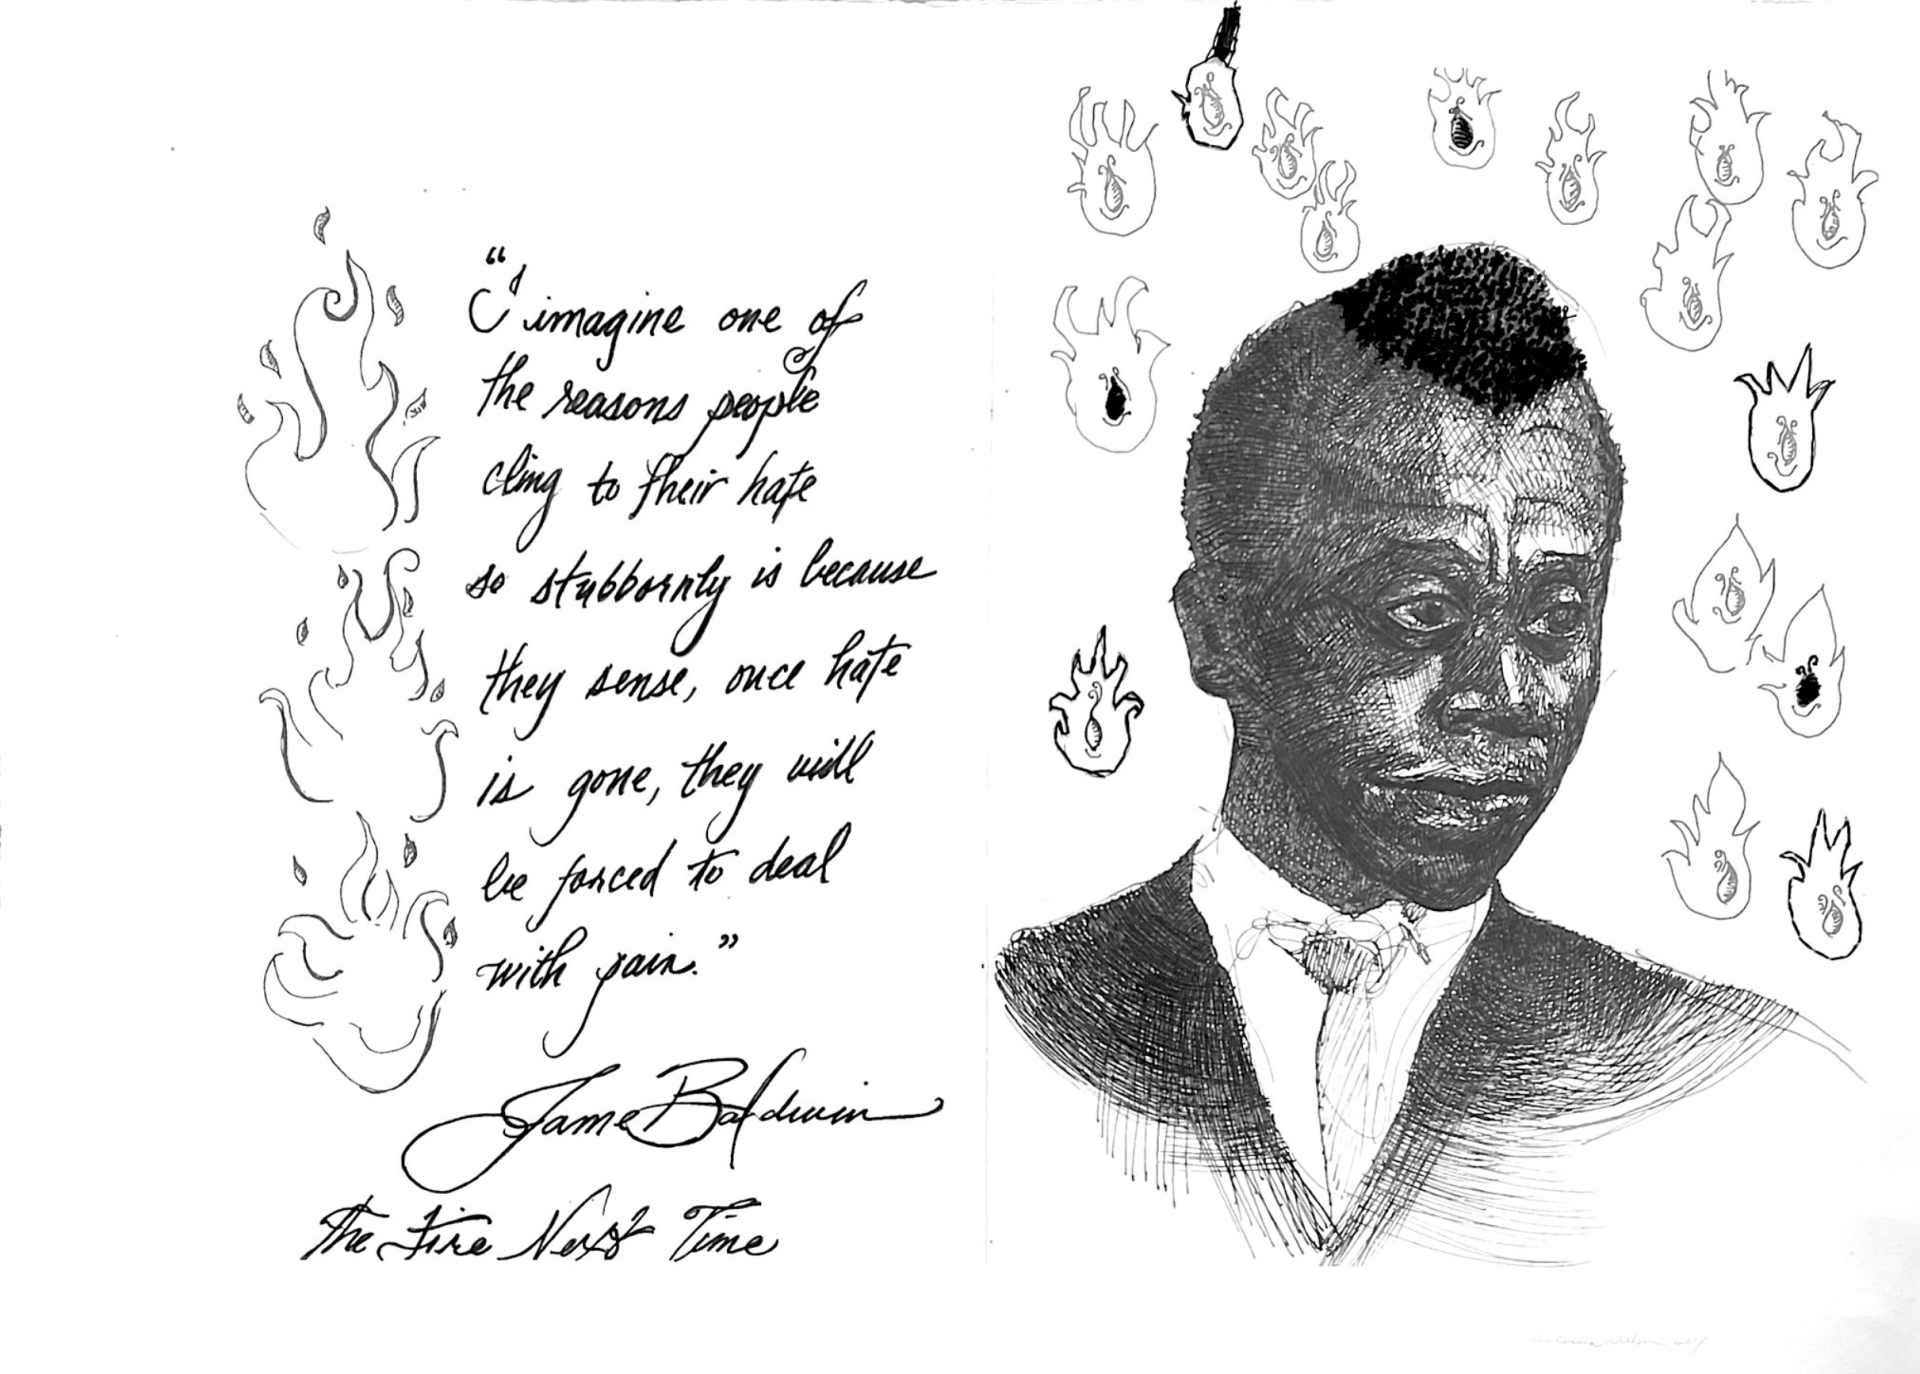 “I imagine one of
the reasons people
cling to their hate
so stubbornly is because
they sense, once hate
is gone, they will
be forced to deal
with pain.”
James Baldwin
The Fire Next Time